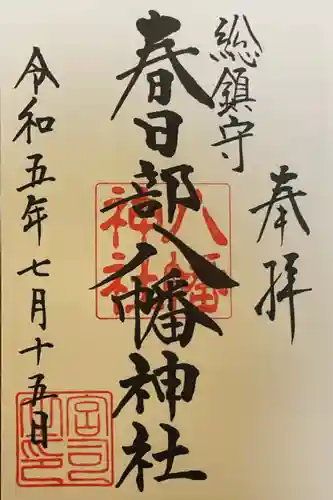 奉拝
総鎮守
春日部八幡神社
八幡神社
令和五年七月十五日
宮司之印